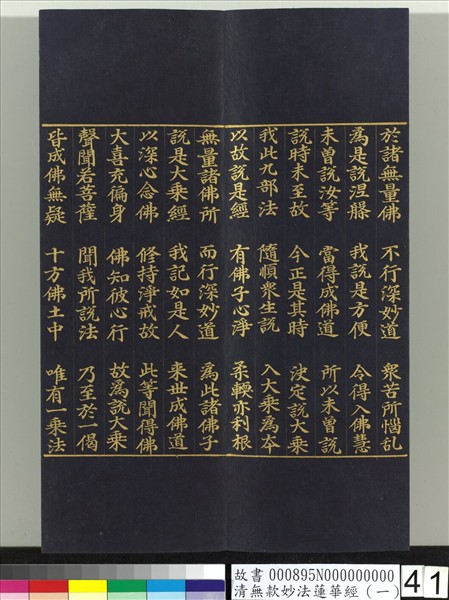 於諸無量佛　不行深妙道　衆苦所惱乱
為是說涅槃　我說是方便　令得入佛慧
未曾說汝等　當得成佛道　所以未曾說
說時未至故　今正是其時　決定說大乘
我此九部法　隨順衆生說　入大乘為夲
以故說是經　有佛子心淨　柔輭亦利根
無量諸佛所　而行深妙道　為此諸佛子
說是大乘經　我記如是人　来世成佛道
以深心念佛　修持淨戒故　此等聞得佛
大喜充徧身　佛知彼心行　故為說大乘
聲聞若菩薩　聞我所說法　乃至於一偈
皆成佛無疑　十方佛土中　唯有一乘法
故書 000895N000000000
清無款妙法蓮華經（一）
41